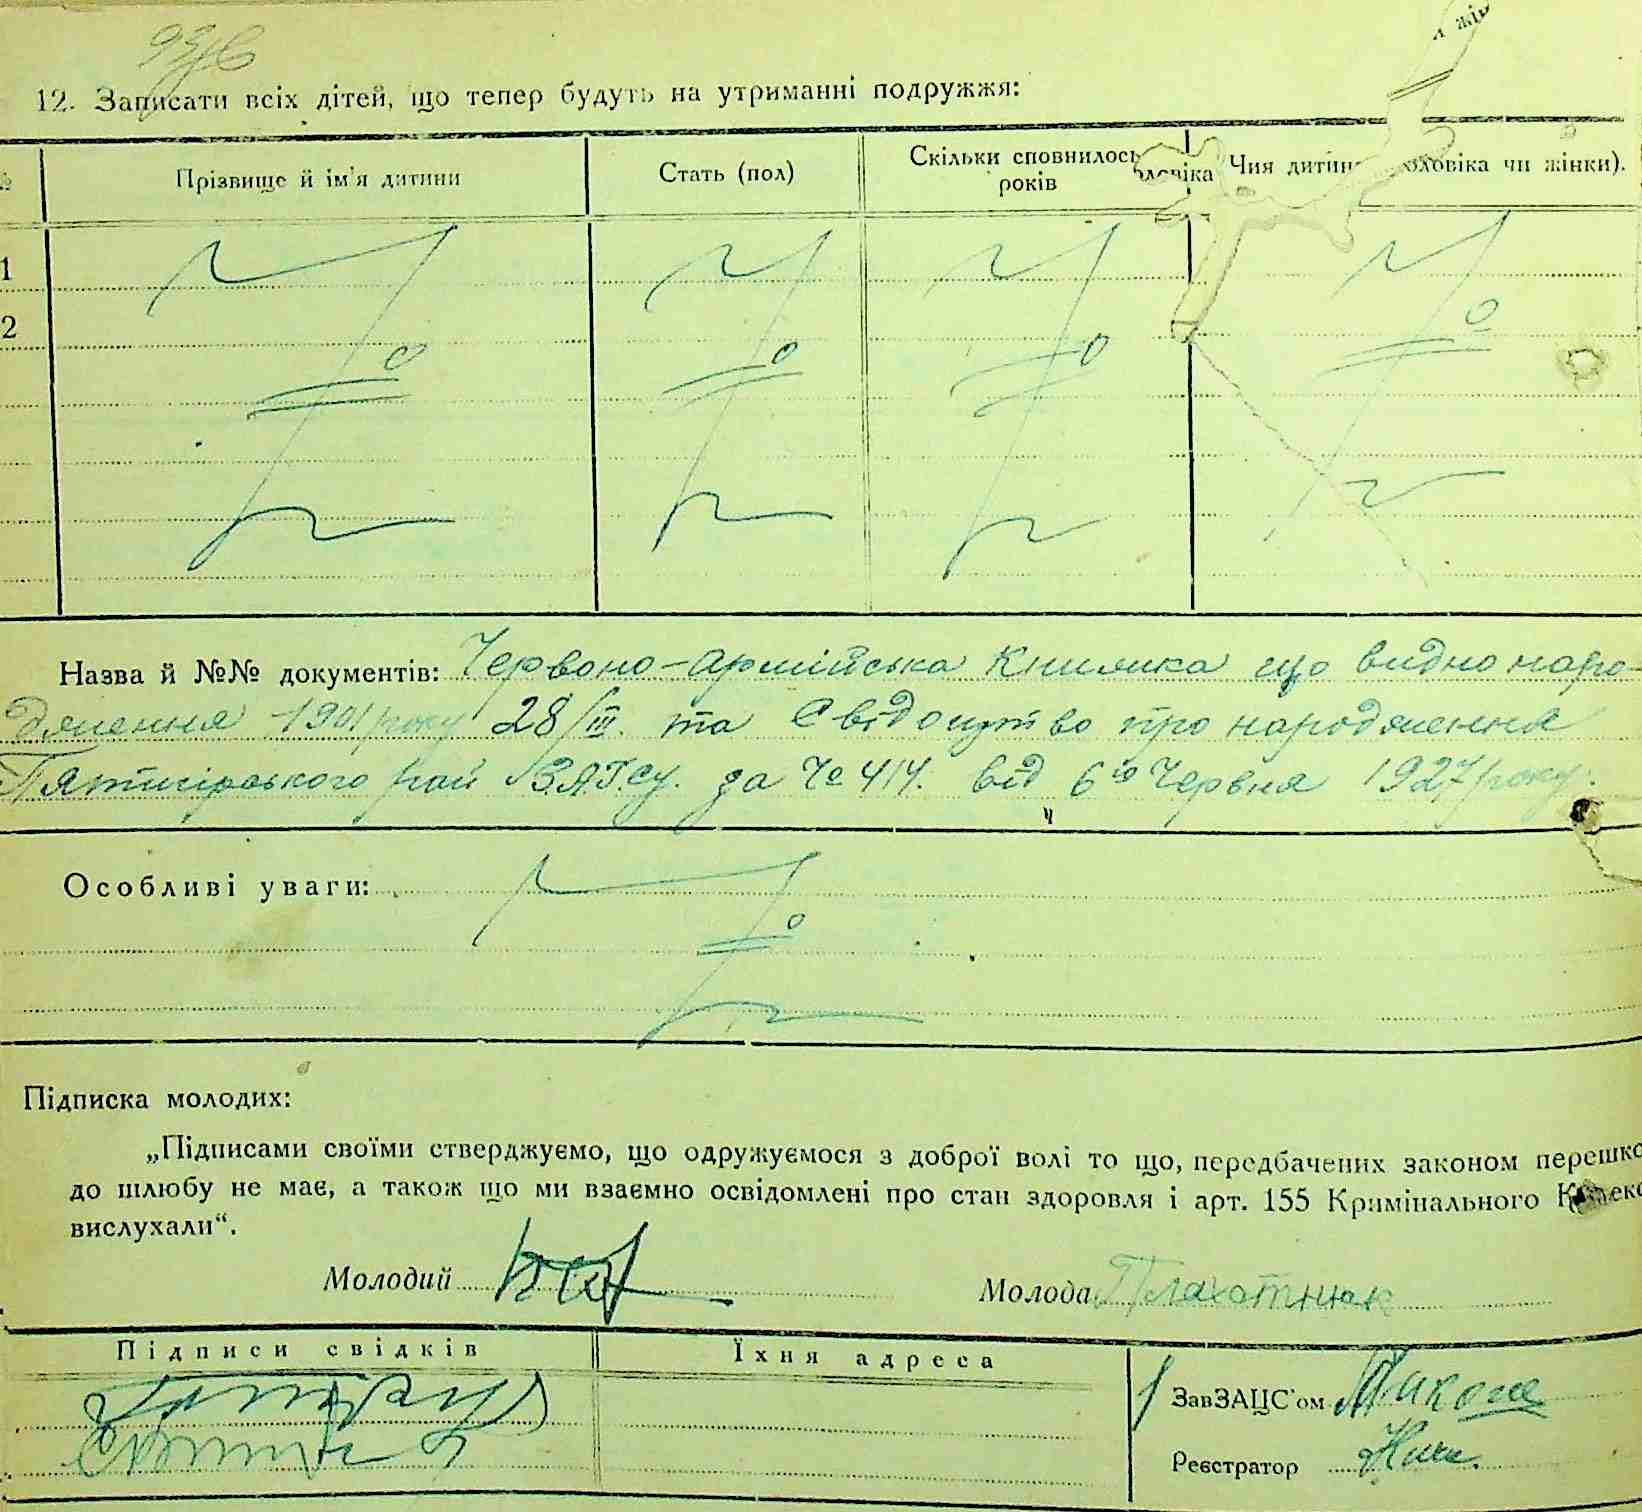 12. Записати всіх дітей, що тепер будуть на утриманні подружжя:
№ Прізвище й ім'я дитини Стать (пол) Скільки сповнилось років Чия дитина (чоловіка чи жінки).
1
2
Назва й №№ документів: Червоно-армійська книжка що видно наро-
дження 1901 року 28/III. та Свідоцтво про народження
Пятигірського рай ЗАГСу. за № 414. від 6го Червня 1927 року.
Особливі уваги:
Підписка молодих:
„Підписами своїми стверджуємо, що одружуємося з доброї волі то що, передбачених законом перешко
до шлюбу не має, а також що ми взаємно освідомлені про стан здоровля і арт. 155 Кримінального Кодекс
вислухали“.
Молодий Молода Плахотнюк
Підписи свідків Їхня адреса
ЗавЗАЦС'ом
Реєстратор